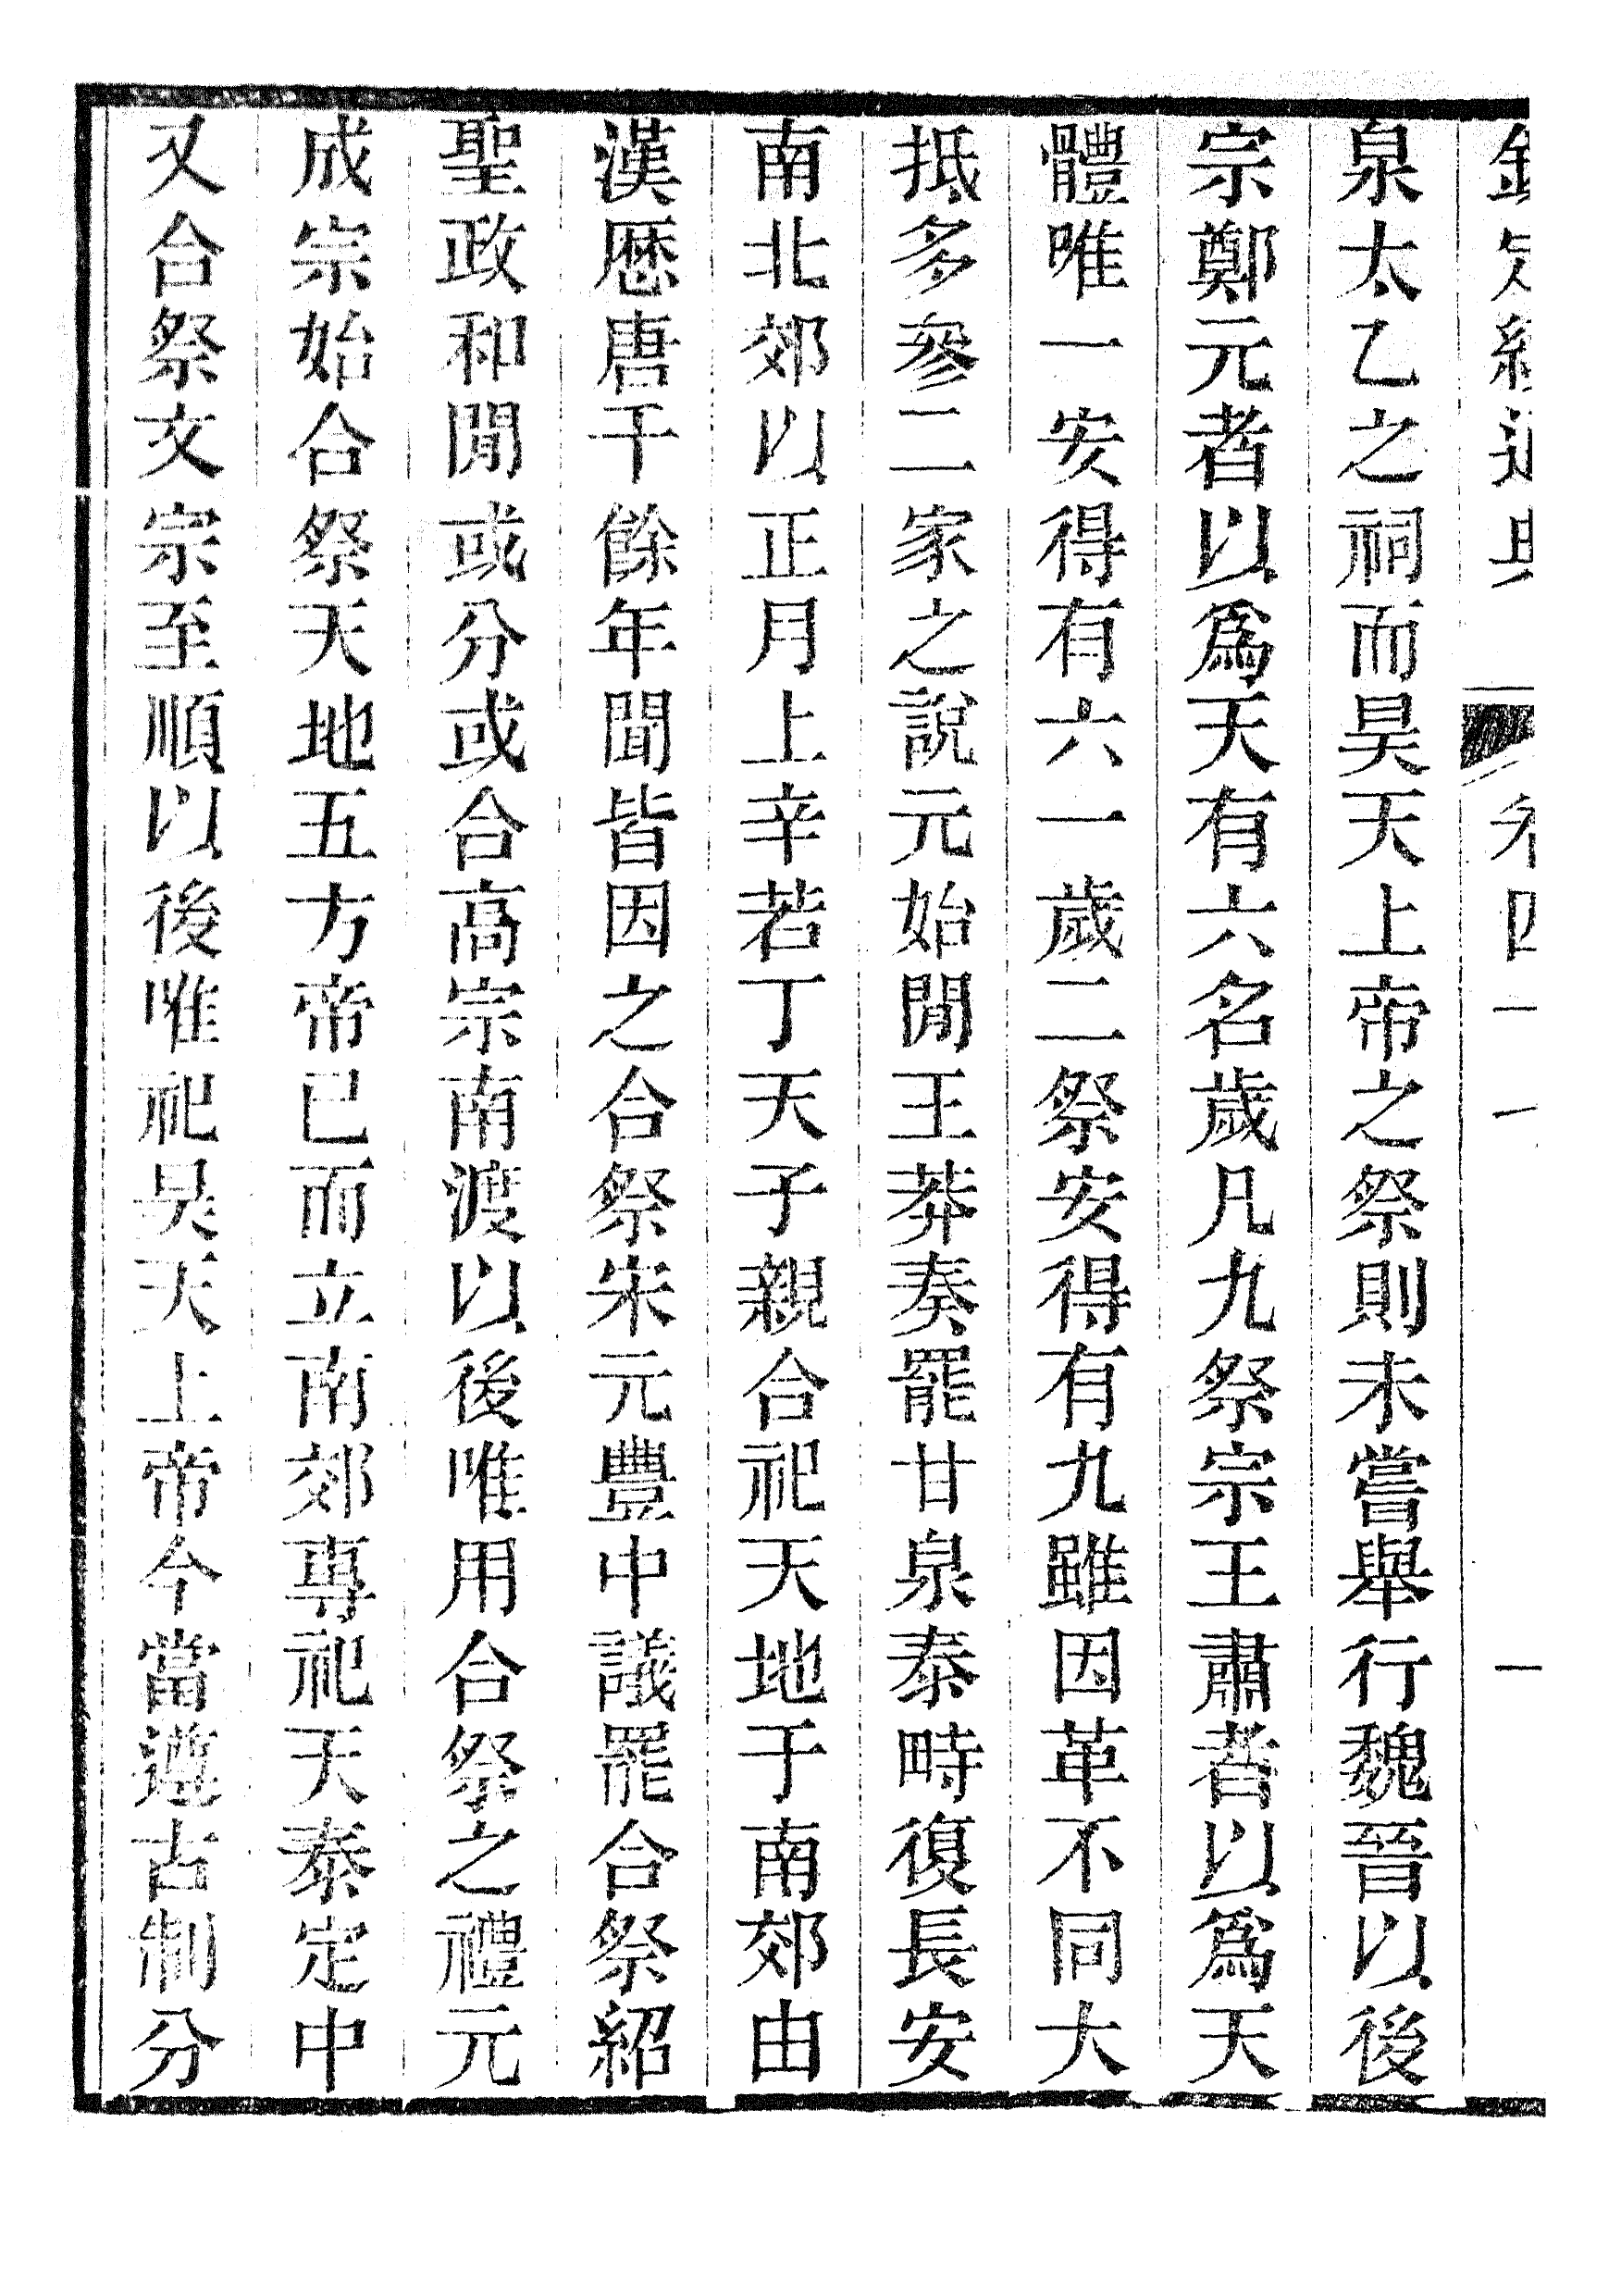 泉太乙之祠而昊天上帝之祭則未嘗舉行魏晉以後
宗鄭元者以爲天有六名歲凡九祭宗王肅者以爲天
體唯一安得有六一歲二祭安得有九雖因革不同大
抵多參二家之說元始閒王莽奏罷甘泉泰畤復長安
南北郊以正月上辛若丁天子親合祀天地于南郊由
漢歷唐千餘年閒皆因之合祭宋元豐中議罷合祭紹
聖政和閒或分或合高宗南渡以後唯用合祭之禮元
成宗始合祭天地五方帝已而立南郊專祀天泰定中
又合祭文宗至順以後唯祀昊天上帝今當遵古制分